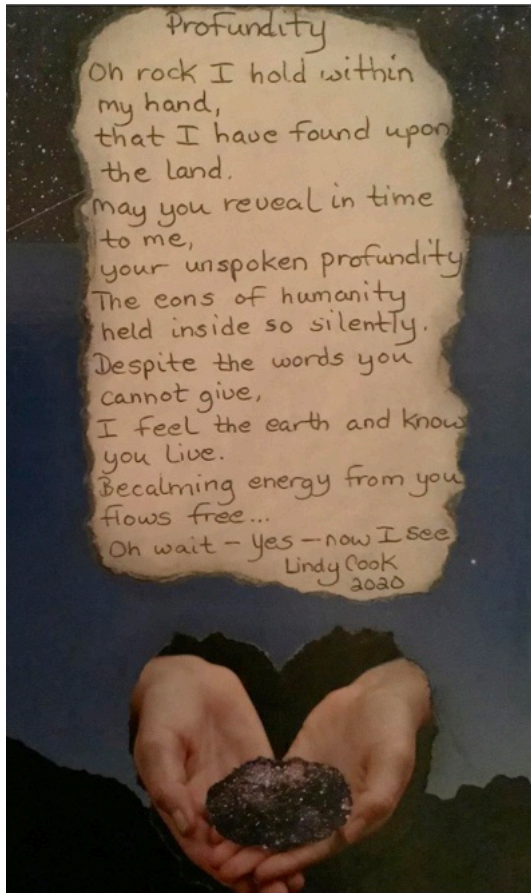 Profundity
Oh rock I hold within
my hand,
that I have found upon
the land.
may you reveal in time
to me,
your unspoken profundity
The eons of humanity
held inside so silently.
Despite the words you
cannot give,
I feel the earth and know
you live.
Becalming energy from you
flows free...
Oh wait - yes - now I see
Lindy Cook
2020